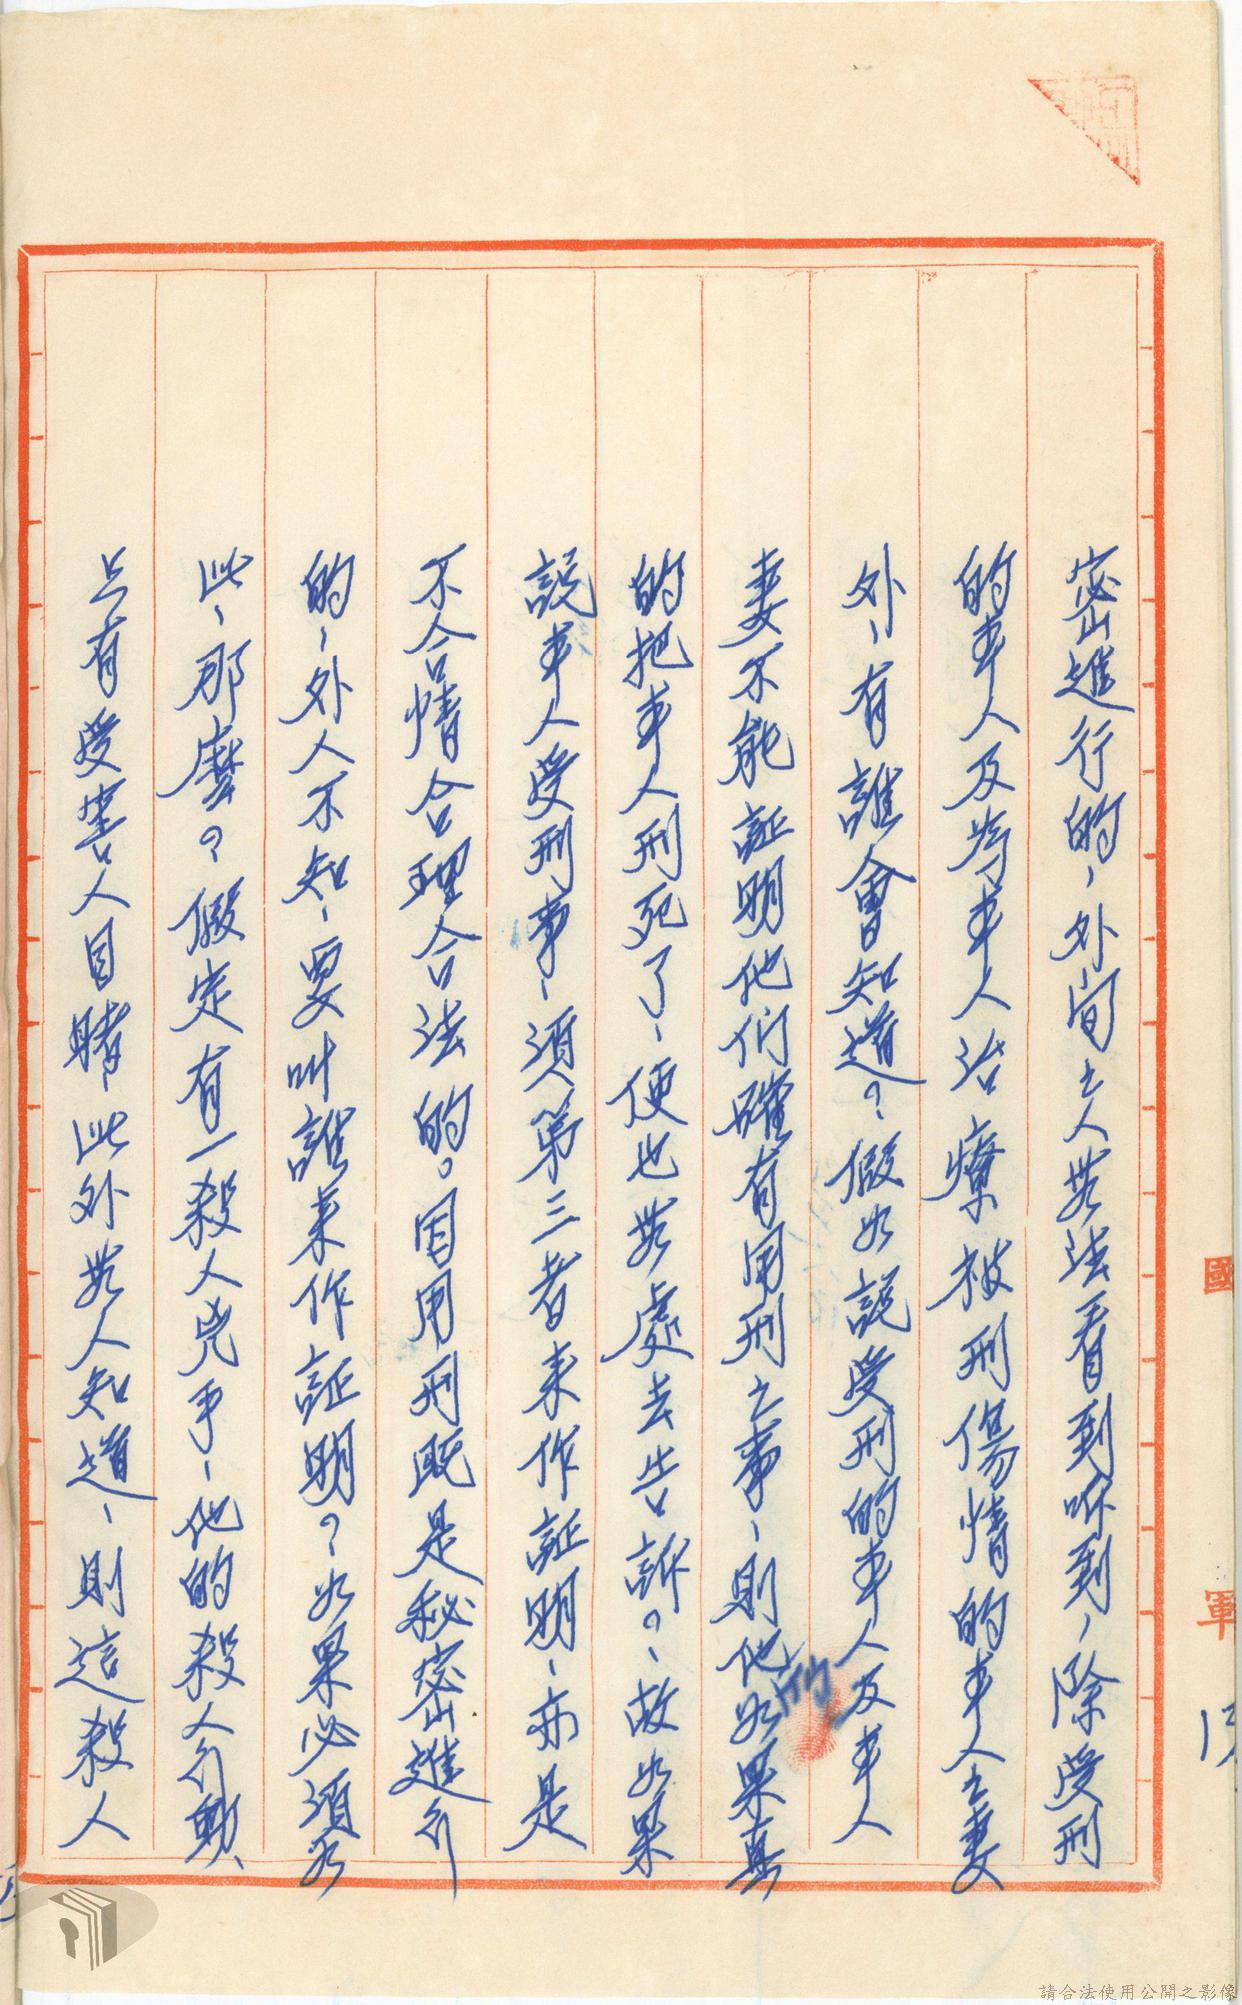 密進行的，外间之人無法看到听到，除受刑
的車人及为車人治療被刑傷情的車人之妻
外，有誰會知道？假如説受刑的車人及車人
妻不能証明他们確有用刑之事，則他如果真
的把車人刑死了，便也無處去告訴？故如果
説車人受刑事，須第三者来作証明，亦是
不合情合理合法的。因用刑既是秘密進行
的，外人不知，要叫誰来作証明？如果必須如
此，那麼？假定有一殺人兇手，他的殺人行動，
只有受害人目睹，此外無人知道，則這殺人
國
軍
請合法使用公開之影像